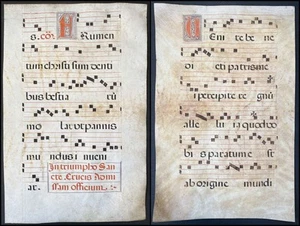 s. cō. FRumen
tum christi sum denti
bus bestia rū
mo lar ut panis
mundus inueni
ar.
In triumpho San
cte Crucis Ad mi
ssam officium.
VEni te be ne
di cti patris me
i percipite regnū
alle lu ia quod vo
bis paratum e st
ab origine mundi